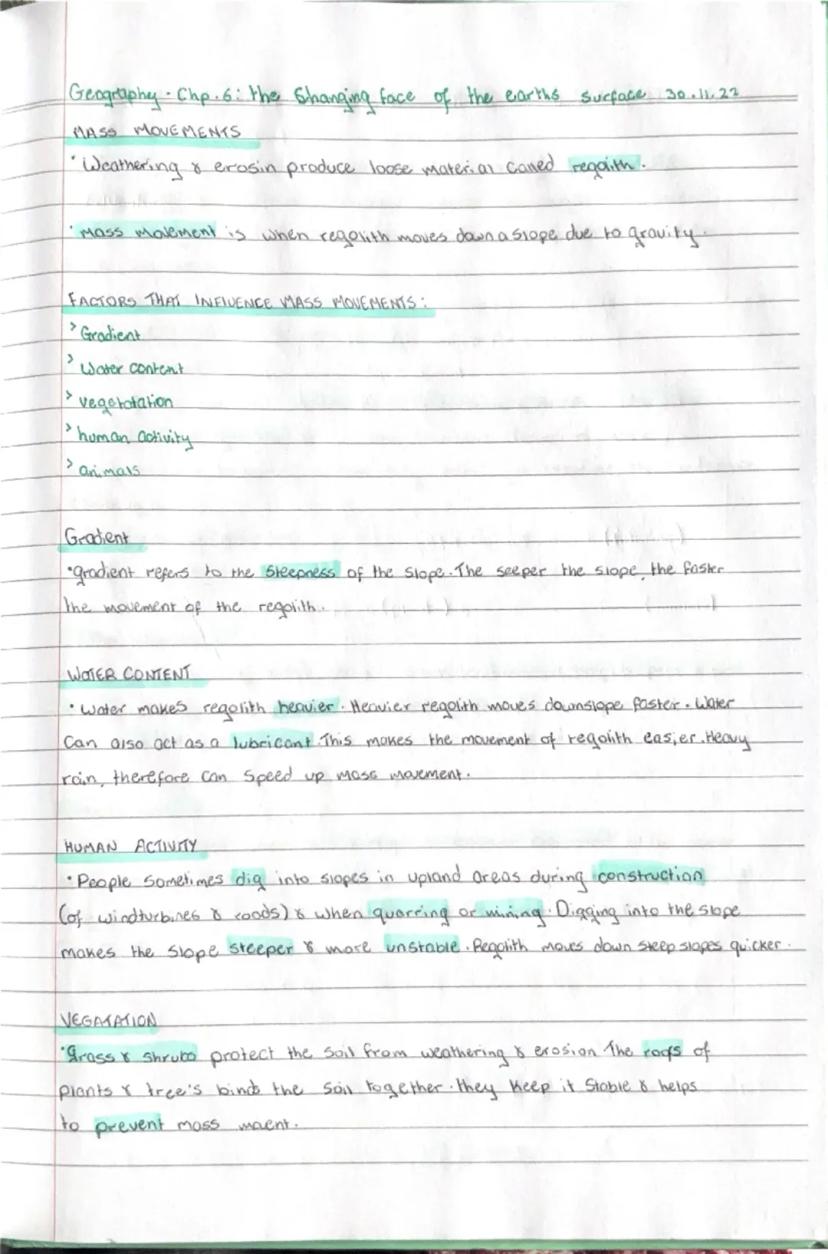 Geography. Chp. 6: the Changing face of the earths surface 30.11.22
MASS MOVEMENTS
• Weathering & erosin produce loose material called regolith.
• Mass movement is when regolith moves down a slope due to gravity.
FACTORS THAT INFLUENCE MASS MOVEMENTS:
> Gradient
> Water content
> vegetatation
> human activity
> animals
Gradient
• gradient refers to the steepness of the slope. The seeper the slope, the faster
the movement of the regolith.
WATER CONTENT
• Water makes regolith heavier. Heavier regolith moves downslope faster. Water
can also act as a lubricant. This makes the movement of regolith easier. Heavy
rain, therefore can speed up mass movement.
HUMAN ACTIVITY
• People sometimes dig into slopes in upland areas during construction
(of windturbines & roads) & when quarring or mining. Digging into the slope
makes the slope steeper & more unstable. Regolith moves down steep slopes quicker.
VEGATATION
• Grass & shrubs protect the soil from weathering & erosion The roots of
plants & tree's binds the soil together. they keep it stable & helps
to prevent mass maent.